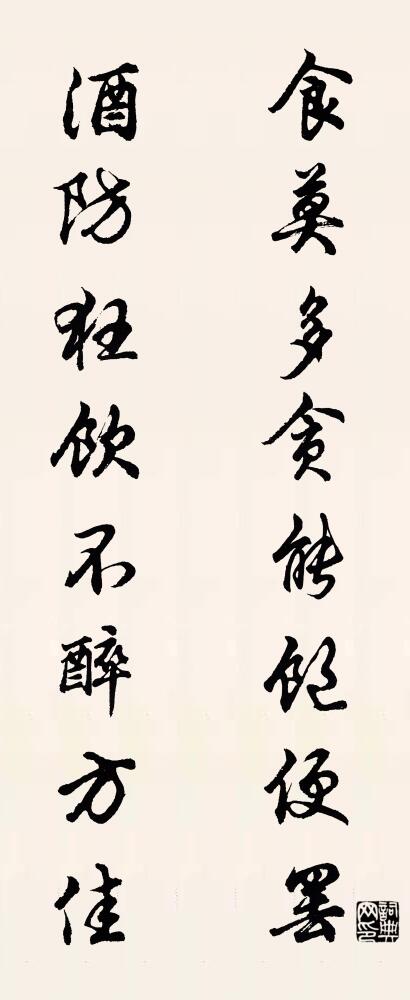 食莫多贪能饱便罢
酒防狂饮不醉方佳
詞典网印